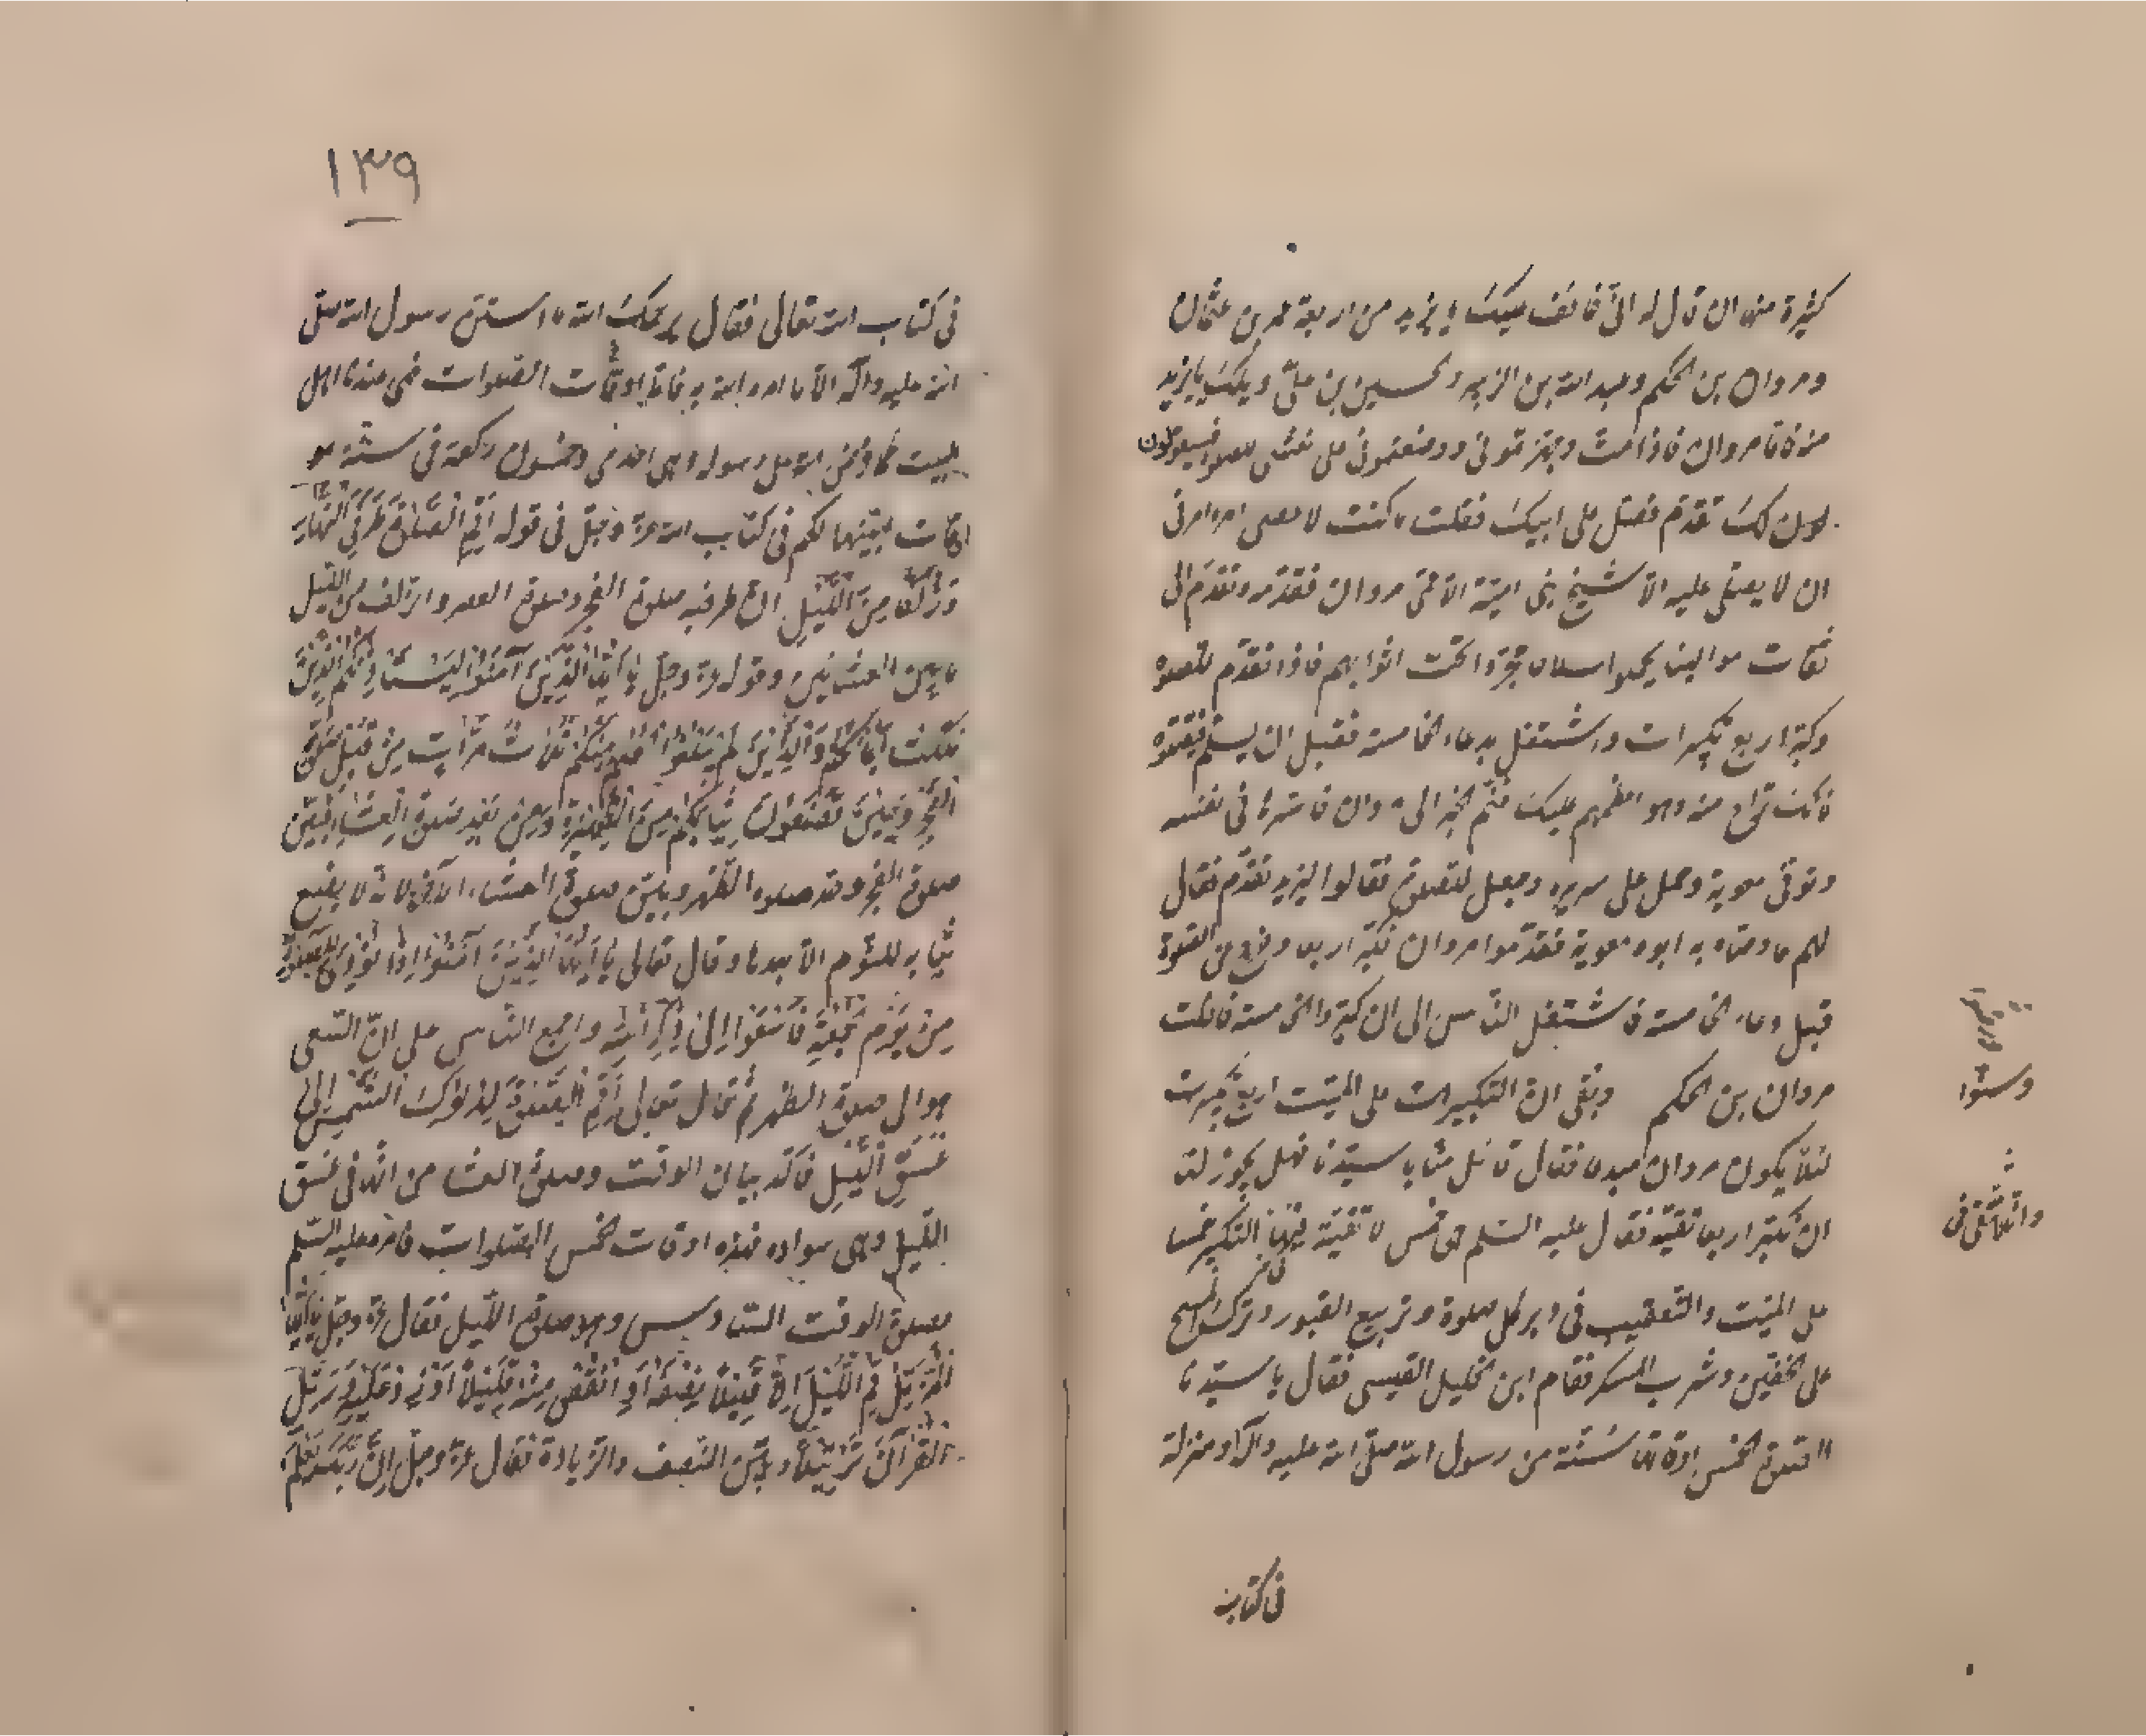 كثيرة منها ان قال له انى خائف عليك يا يزيد من اربعة عمر بن عثمان
ومروان بن الحكم وعبد الله بن الزبير والحسين بن علىّ ويلك يا يزيد
منه فاما مروان فاذا مت وجهزتمونى ووضعتمونى على نعشى للصلوة فسيقولون
لك تقدّم فصلّ على ابيك فقلت ما كنت لاعصى امره امرنى
ان لا يصلّى عليه الا شيخ بنى اميّة الا عمّى مروان فقدّمه وتقدّم الى
ثقات موالينا يحملوا سلاحا مجرّدا تحت اثوابهم فاذا تقدّم للصلوة
وكبّر اربع تكبيرات واشتغل بدعاء الخامسة فقبل ان يسلّم فيقتلوه
فانك تراح منه وهو اعظمهم عليك فنمّ الخبر الى مروان فاسرّها فى نفسه
وتوفّى معوية وحمل على سريره وجعل للصلوة فقالوا ليزيد تقدّم فقال
لهم ما وصّاه به ابوه معوية فقدّموا مروان فكبّر اربعا وخرج عن الصلوة
قبل دعاء الخامسة فاشتغل الناس الى ان كبّروا الخامسة فافلت
مروان بن الحكم وبقى ان التكبيرات على الميّت اربع تكبيرات
لئلا يكون مروان مبدعا فقال قائل منّا يا سيّدنا فهل يجوز لنا
ان نكبّر اربعا تقيّة فقال عليه السّلم هى خمس لا تقيّة فيها التكبير خمسا
على الميّت والتعقيب فى دبر كل صلوة وتربيع القبور وترك المسح
على الخفّين وشرب المسكر فقام ابن الخليل القيسى فقال يا سيّدنا
الصلوة الخمس اوقاتها سنّة من رسول الله صلّى الله عليه وآله او منزلة
فى كتاب
١٣٩
فى كتاب الله تعالى فقال يرحمك الله ما استنّ رسول الله صلّى
الله عليه وآله الّا ما امره الله به فامّا اوقات الصّلوات فهى عندنا اهل
البيت كما فرض الله على رسوله وهى احدى وخمسون ركعة فى ستّة
اوقات ابيّنها لكم فى كتاب الله عزّ وجلّ فى قوله اَقِمِ الصَّلٰوةَ طَرَفَىِ النَّهَارِ
وَزُلَفًا مِنَ اللَّيْلِ انّ طرفيه صلوة الفجر وصلوة العصر والزلف من اللّيل
ما بين العشائين وقوله عزّ وجلّ يَا اَيُّهَا الَّذِينَ آمَنُوا لِيَسْتَاْذِنْكُمُ الَّذِينَ
مَلَكَتْ اَيْمَانُكُمْ وَالَّذِينَ لَمْ يَبْلُغُوا الْحُلُمَ مِنْكُمْ ثَلَاثَ مَرَّاتٍ مِنْ قَبْلِ صَلٰوةِ
الْفَجْرِ وَحِينَ تَضَعُونَ ثِيَابَكُمْ مِنَ الظَّهِيرَةِ وَمِنْ بَعْدِ صَلٰوةِ الْعِشَاءِ فبيّن
صلوة الفجر وحد صلوة الظّهر وبيّن صلوة العشاء الآخرة لانه لا يضع
ثيابه للنّوم الّا بعدها وقال تعالى يَا اَيُّهَا الَّذِينَ آمَنُوا اِذَا نُودِىَ لِلصَّلٰوةِ
مِنْ يَوْمِ الْجُمُعَةِ فَاسْعَوْا اِلٰى ذِكْرِ اللّٰهِ واجمع النّاس على انّ السّعى
هو الى صلوة الظّهر ثم قال تعالى اَقِمِ الصَّلٰوةَ لِدُلُوكِ الشَّمْسِ اِلٰى
غَسَقِ اللَّيْلِ فاكّد بيان الوقت وصلوة العشا من انّها فى غسق
اللّيل وهى سواده فهذه اوقات الخمس الصّلوات فامره عليه السّلم
بصلوة الوقت السّادس وهو صلوة اللّيل فقال عزّ وجلّ يَا اَيُّهَا
الْمُزَّمِّلُ قُمِ اللَّيْلَ اِلَّا قَلِيلًا نِصْفَهُ اَوِ انْقُصْ مِنْهُ قَلِيلًا اَوْ زِدْ عَلَيْهِ وَرَتِّلِ
الْقُرْآنَ تَرْتِيلًا وبيّن النّصف والزّيادة فقال عزّ وجلّ اِنَّ رَبَّكَ يَعْلَمُ